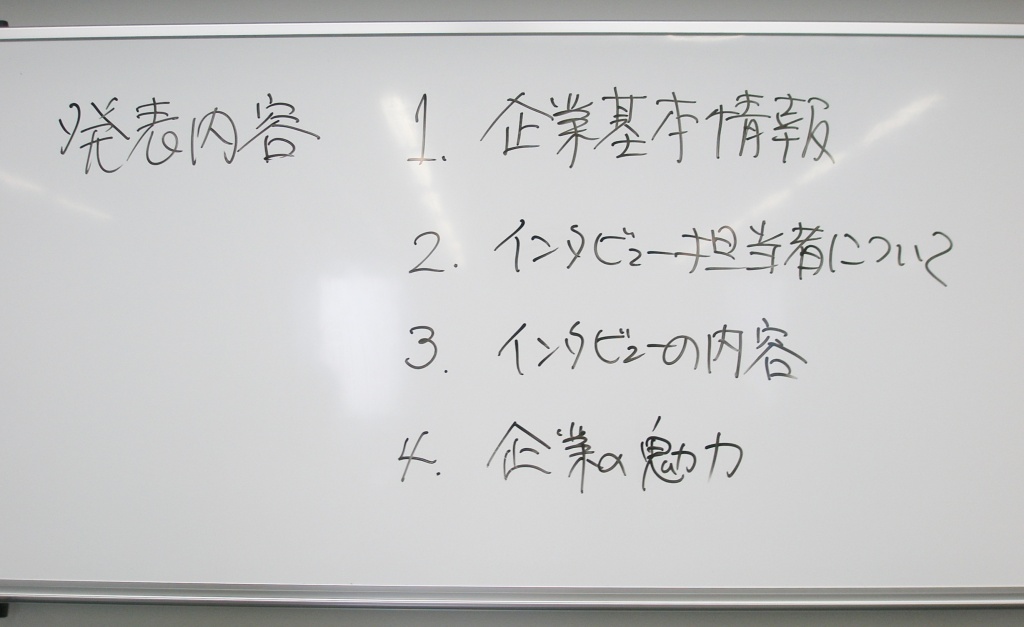 発表内容 1. 企業基本情報
2. インタビュー担当者について
3. インタビューの内容
4. 企業の魅力